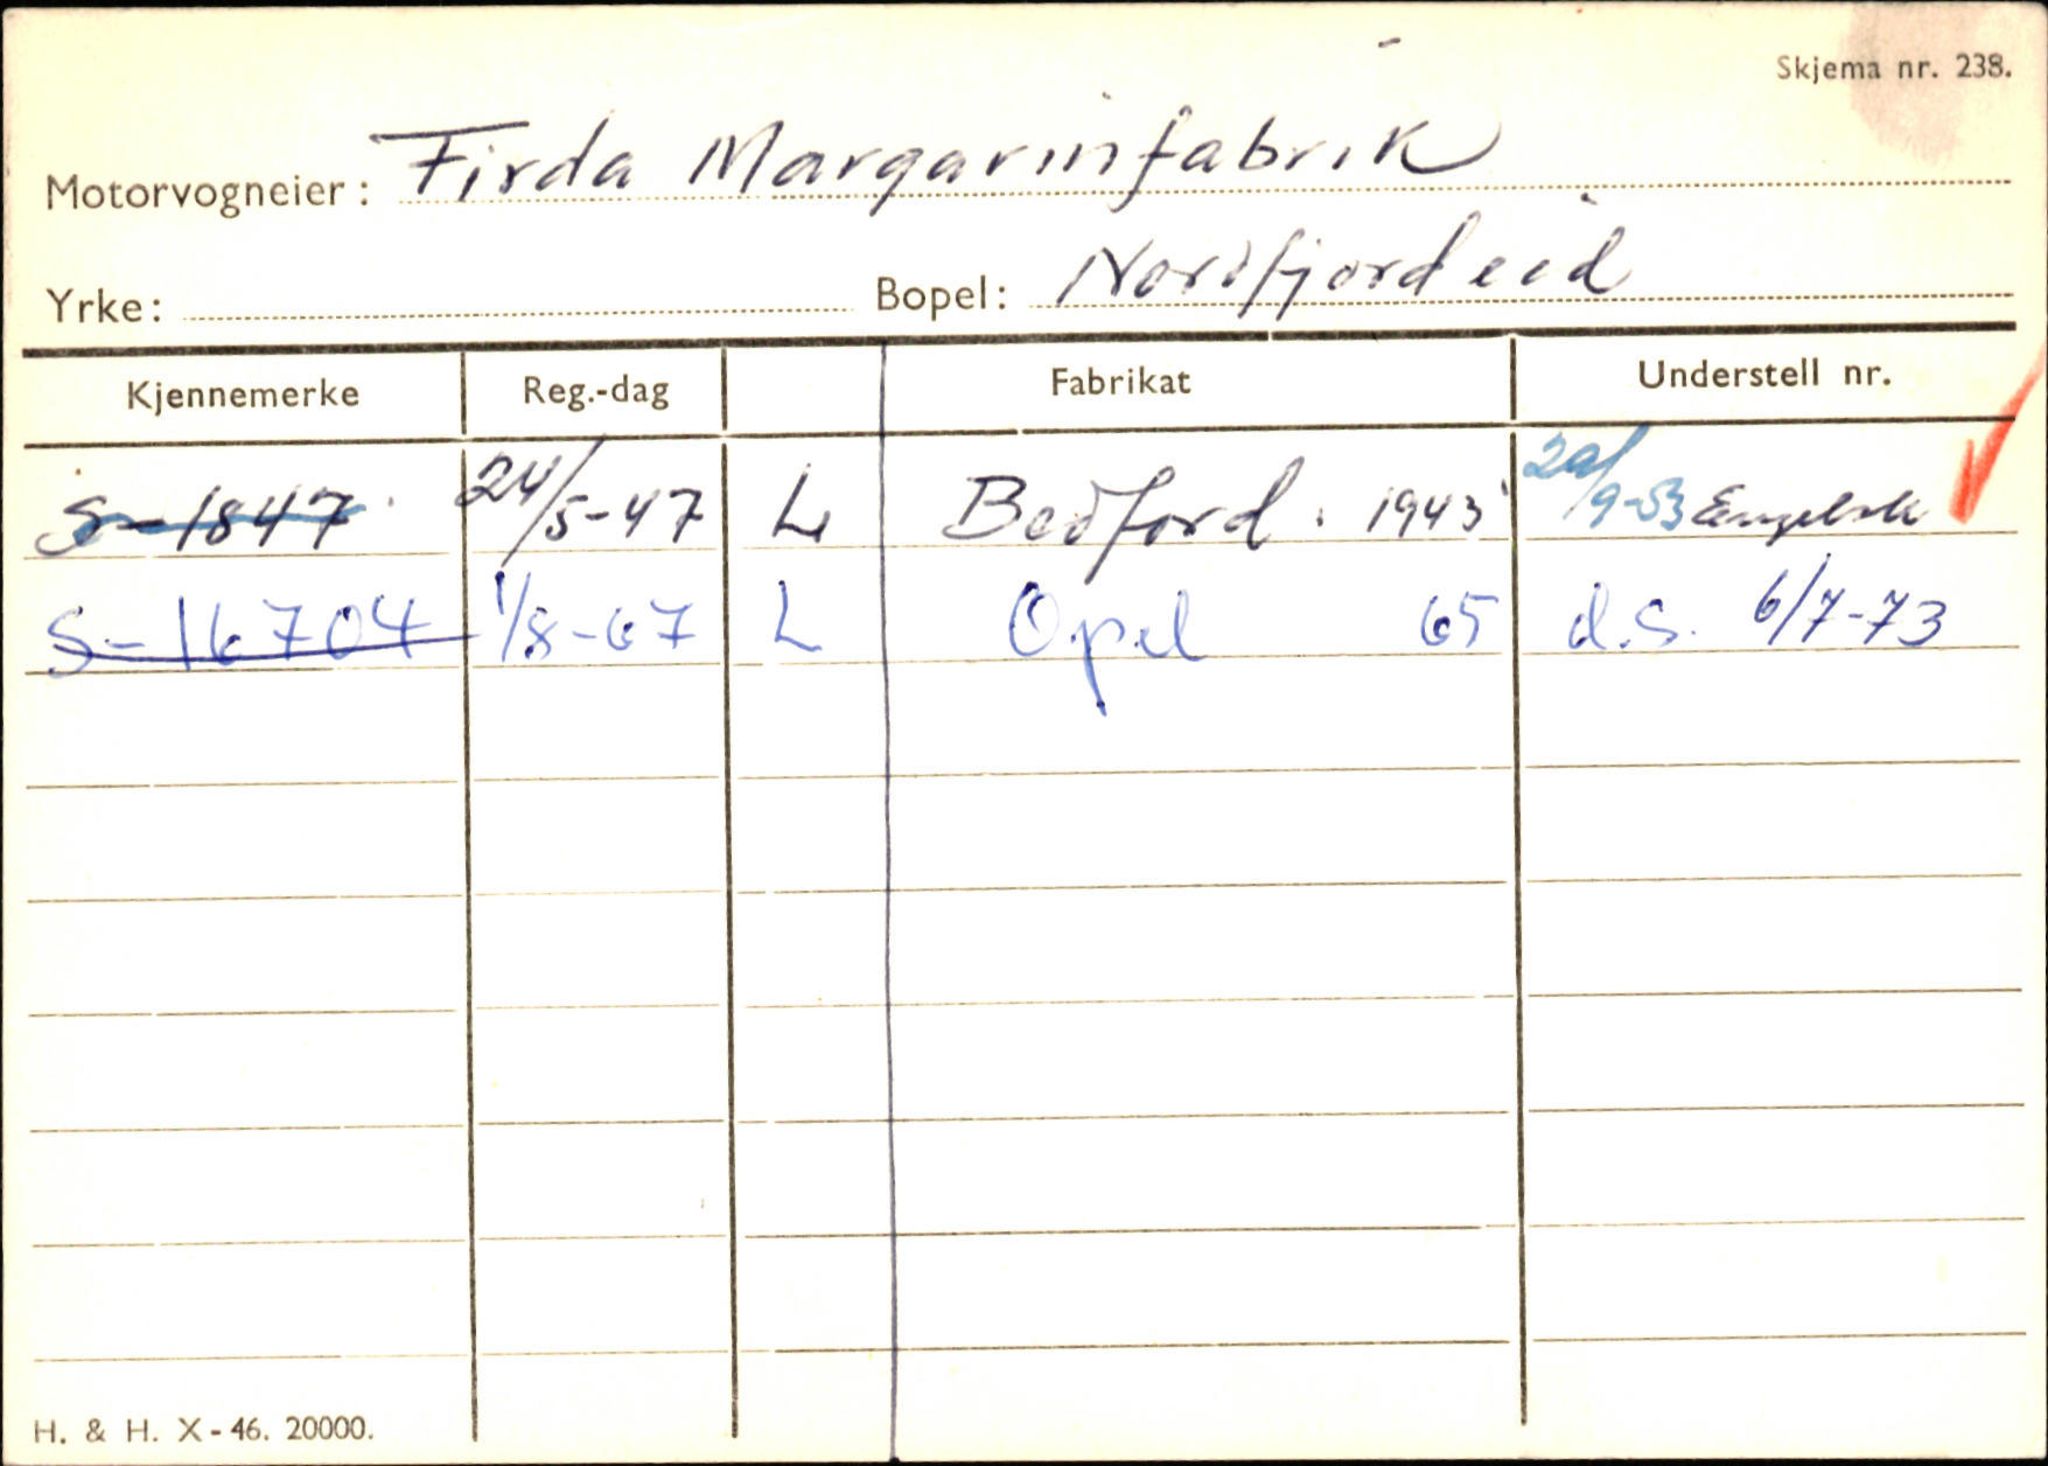 Skjema nr. 238.
Motorvogneier: Firda Margarinfabrik
Yrke: Bopel: Nordfjordeid
Kjennemerke Reg.-dag Fabrikat Understell nr.
S-1847 24/5-47 L Bedford. 1943 /9-53 Engelsk
S-16704 1/8-67 L Opel 65 d.s. 6/7-73
H. & H. X-46. 20000.